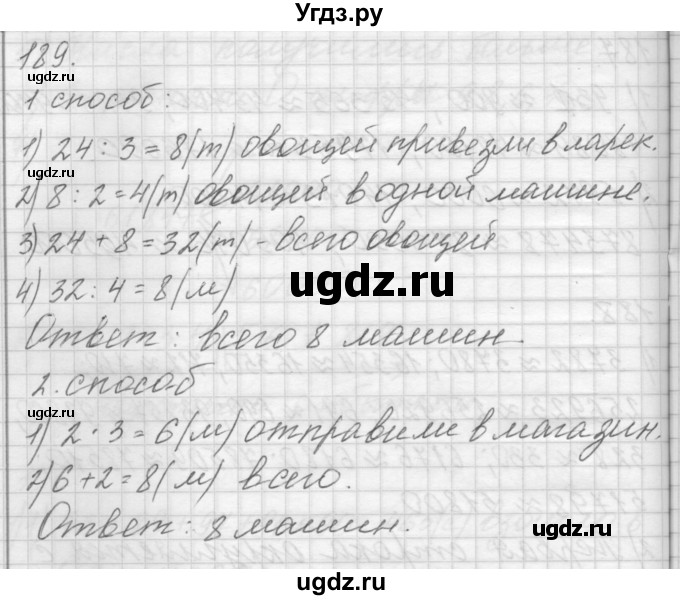 Угдз.ру
189.
ugdz.ru
1 способ:
1) 24 : 3 = 8 (т) овощей привезли в ларек.
ugdz.ru
2) 8 : 2 = 4 (т) овощей в одной машине.
3) 24 + 8 = 32 (т) - всего овощей
ugdz.ru
4) 32 : 4 = 8 (м)
Ответ: всего 8 машин.
2. способ
ugdz.ru
1) 2 · 3 = 6 (м) отправили в магазин.
2) 6 + 2 = 8 (м) всего.
ugdz.ru
Ответ: 8 машин.
ugdz.ru
ugdz.ru